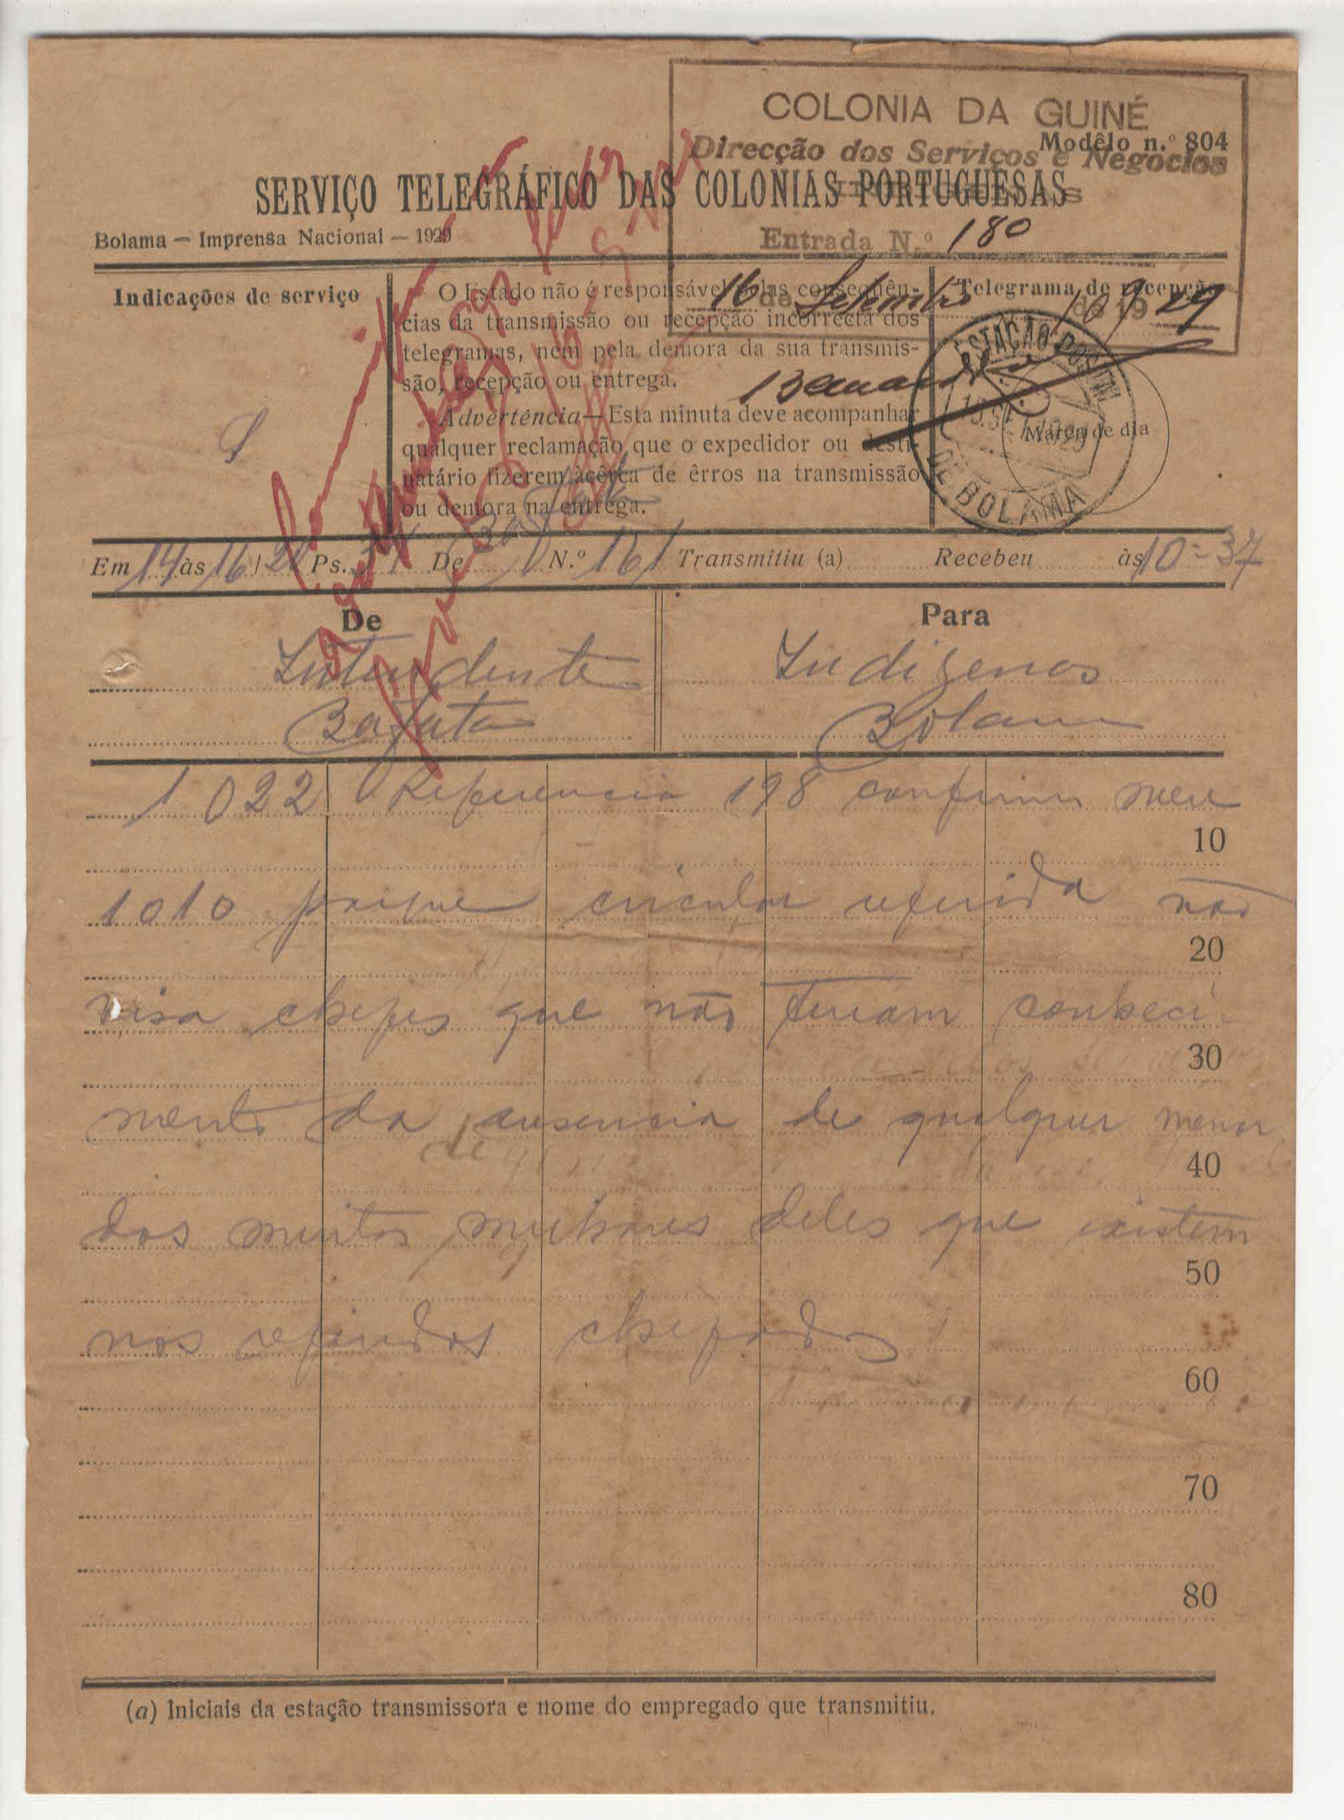 COLONIA DA GUINÉ
Modêlo n.º 804
Direcção dos Serviços e Negocios
SERVIÇO TELEGRÁFICO DAS COLONIAS PORTUGUESAS
Bolama — Imprensa Nacional — 1929
Entrada N.º 180
16 de Setembro de 1929
Indicações de serviço
O Estado não é responsável pelas consequên-
cias da transmissão ou recepção incorrecta dos
telegramas, nem pela demora da sua transmis-
são, recepção ou entrega.
Advertência—Esta minuta deve acompanhar
qualquer reclamação que o expedidor ou desti-
natário fizerem àcêrca de êrros na transmissão
ou demora na entrega.
Telegrama de recepção
ESTAÇÃO POSTAL
DE BOLAMA
Marca de dia
Em 14 às 16/20 Ps. De Bafata N.º 161 Transmitiu (a) Recebeu às 10-37
De
Para
Intendente
Indigenas
Bafata
Bolama
1022 Referencia 198 confirmo meu
10
1010 porque circular referida não
20
visa chefes que não teriam conheci-
30
mento da ausencia de qualquer menor
40
dos muitos milhares deles que existem
50
nos referidos chefados
60
70
80
(a) Iniciais da estação transmissora e nome do empregado que transmitiu.